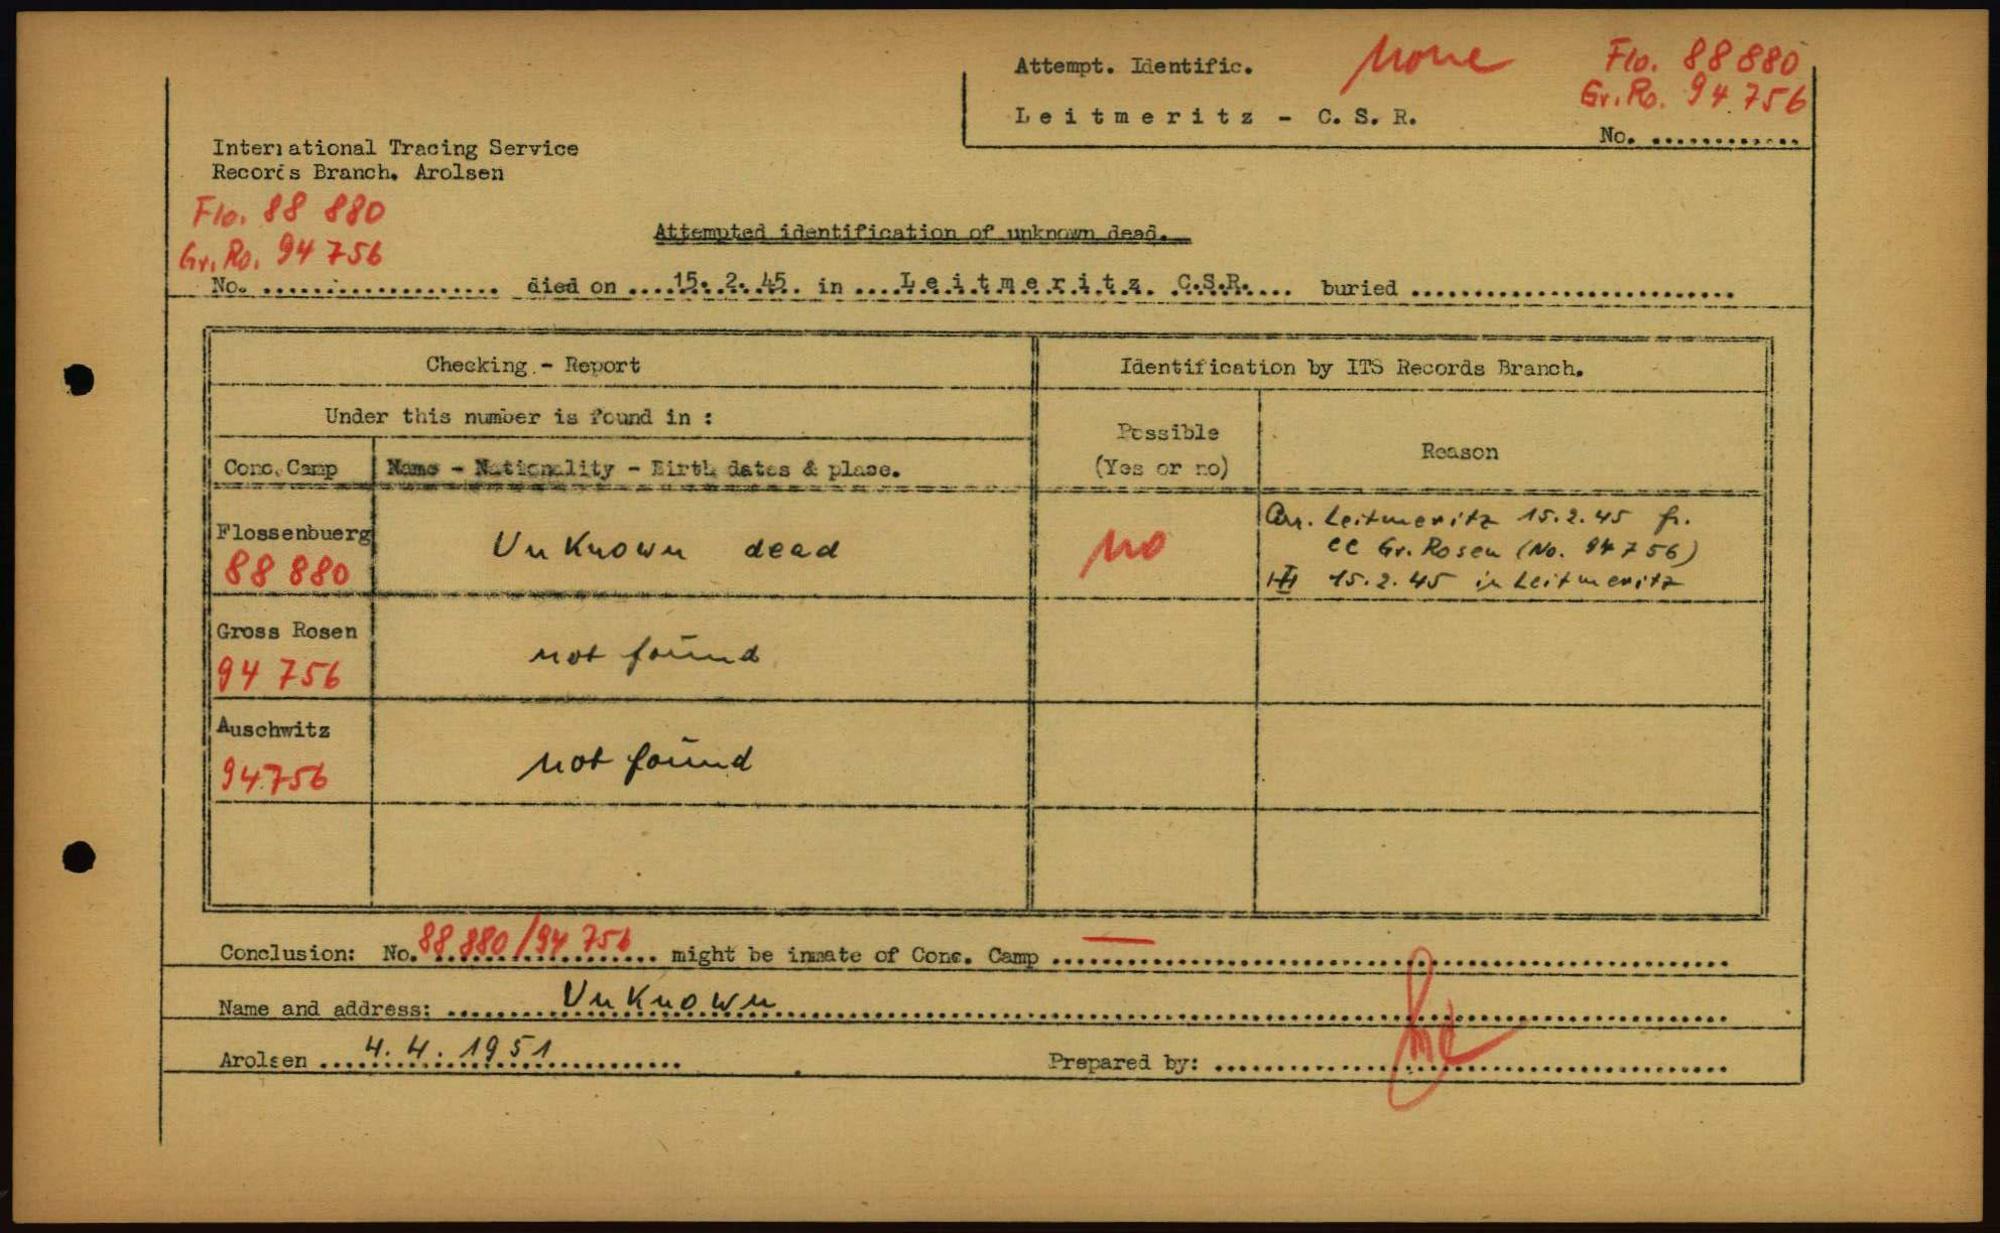 Attempt. Identific. none Flo. 88 880
Gr. Ro. 94 756
Leitmeritz - C. S. R.
No. ............
International Tracing Service
Records Branch. Arolsen
Flo. 88 880
Gr. Ro. 94 756
Attempted identification of unknown dead.
No. .................. died on ....15. 2. 45. in ....Leitmeritz. C.S.R.... buried .........................
Checking - Report
Identification by ITS Records Branch.
Under this number is found in :
Possible
(Yes or no)
Reason
Conc. Camp
Name - Nationality - Birth dates & place.
Flossenbuerg
88 880
Unknown dead
no
Arr. Leitmeritz 15.2.45 fr.
CC Gr. Rosen (No. 94 756)
15.2.45 in Leitmeritz
Gross Rosen
94 756
not found
Auschwitz
94756
not found
Conclusion: No. 88 880/94 756 might be inmate of Conc. Camp —
Name and address: Unknown
Arolsen 4. 4. 1951
Prepared by: